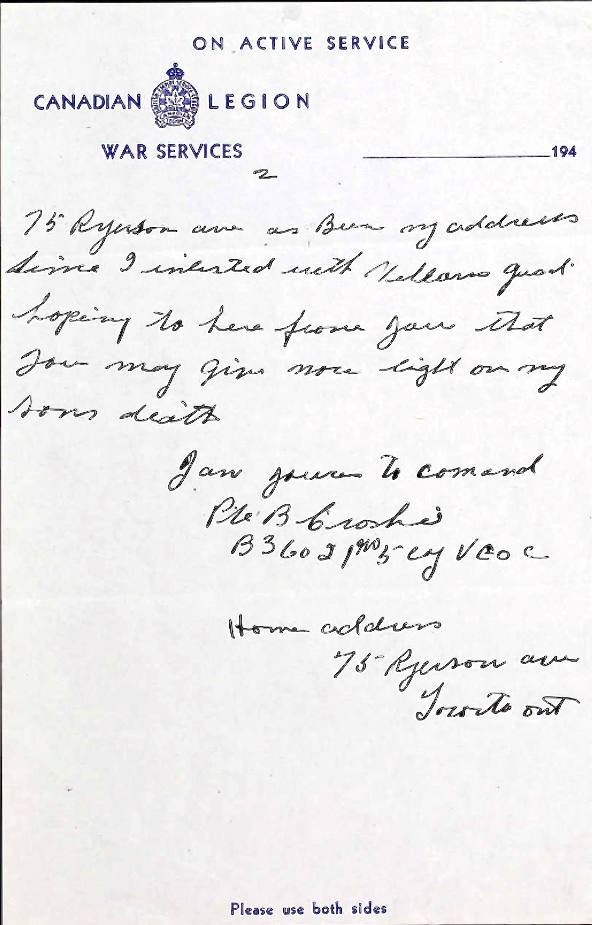 ON ACTIVE SERVICE
CANADIAN LEGION
WAR SERVICES
194
2
75 Ryerson ave as Been my address
since I inlested with Vetlarns guad
hoping to here frome you that
you may give more light on my
sons death
I am youres to comand
Pte B Croshie
B36021 No 5 Cy V C O C
Home address
75 Ryerson ave
Toronto ont
Please use both sides